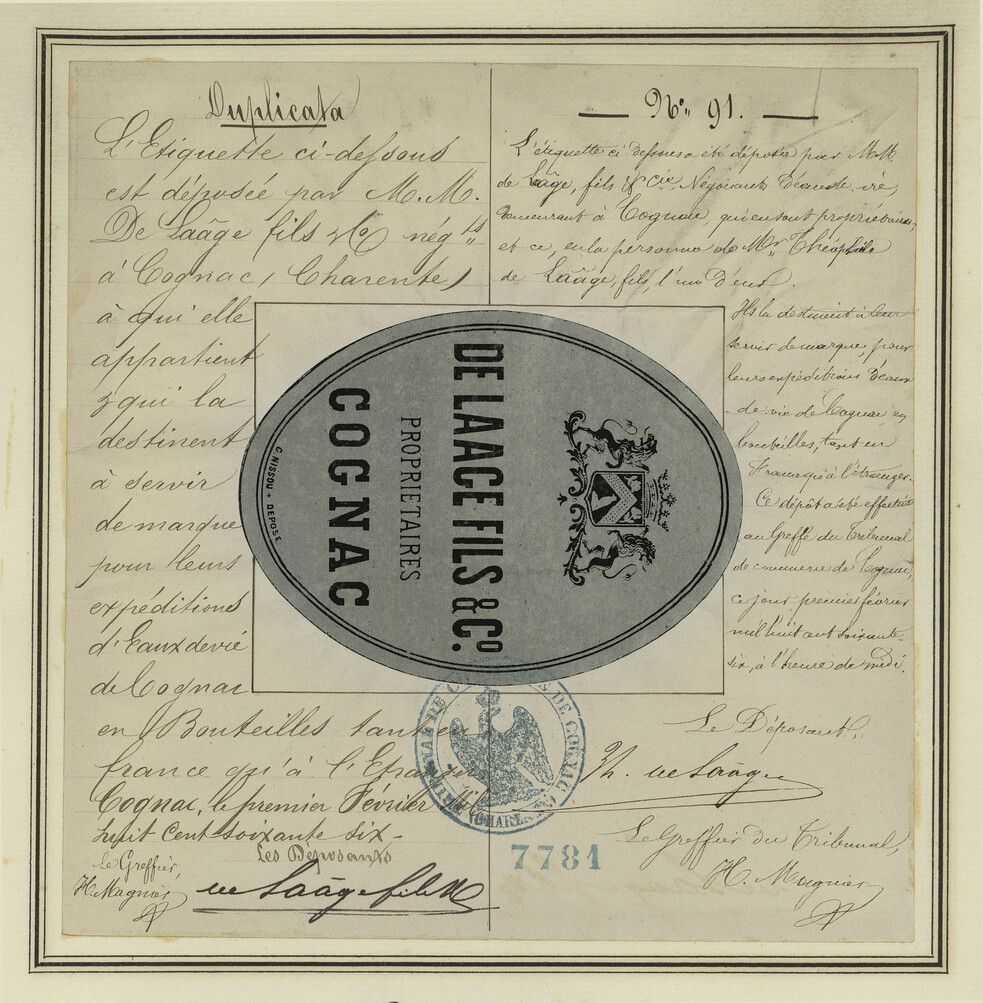 Duplicata
L'Etiquette ci-dessous
est déposée par M.M.
De Laâge fils & Co négts
à Cognac, (Charente)
à qui elle
appartient
& qui la
destinent
à servir
de marque
pour leurs
expéditions
d'Eaux de vie
de Cognac
en Bouteilles tant en
france qu'à l'Etranger
Cognac, le premier Février Mil
huit Cent soixante six-
Les Déposants
Le Greffier,
H. Magnier
de Laâge fils & Co
— No. 91. —
L'étiquette ci dessous a été déposée par M.M.
de Laâge, fils & Cie, Négociants d'eau de vie,
demeurant à Cognac, qui en sont propriétaires,
et ce, en la personne de Mr Théophile
de Laâge, fils, l'un d'eux.
Ils la destinent à leur
servir de marque, pour
leurs expéditions d'eaux
-de-vie de Cognac en
bouteilles, tant en
France qu'à l'étranger.
Ce dépôt a été effectué
au Greffe du Tribunal
de commerce de Cognac,
ce jour premier février
mil huit cent soixante-
six, à l'heure de midi.
Le Déposant,
Th. de Laâge
Le Greffier du Tribunal,
H. Magnier
DE LAAGE FILS & Co
PROPRIETAIRES
COGNAC
C. NISSOU + DEPOSE
DE COGNAC
(CHARENTE)
7781